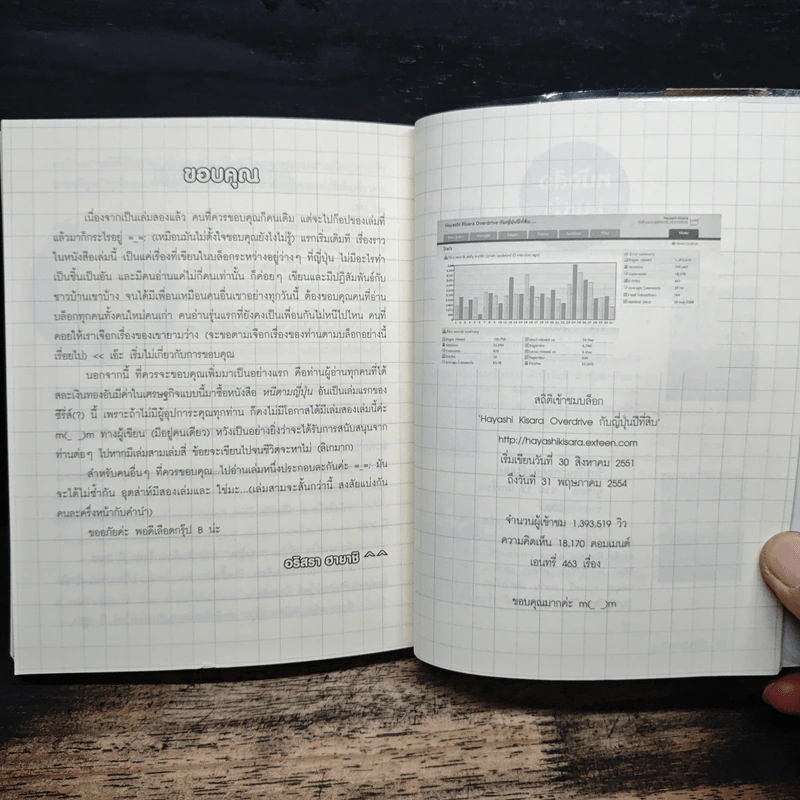 ขอบคุณ
เนื่องจากเป็นเล่มสองแล้ว คนที่ควรขอบคุณก็คนเดิม แต่จะไปก๊อปของเล่มที่
แล้วมาก็กระไรอยู่ =_=; (เหมือนมันไม่ตั้งใจขอบคุณยังไงไม่รู้) แรกเริ่มเดิมที เรื่องราว
ในหนังสือเล่มนี้ เป็นแค่เรื่องที่เขียนในบล็อกระหว่างอยู่ว่างๆ ที่ญี่ปุ่น ไม่มีอะไรทำ
เป็นชิ้นเป็นอัน และมีคนอ่านแค่ไม่กี่คนเท่านั้น ก็ค่อยๆ เขียนและมีปฏิสัมพันธ์กับ
ชาวบ้านเขาบ้าง จนได้มีเพื่อนเหมือนคนอื่นเขาอย่างทุกวันนี้ ต้องขอบคุณคนที่อ่าน
บล็อกทุกคนทั้งคนใหม่คนเก่า คนอ่านรุ่นแรกที่ยังคงเป็นเพื่อนกันไม่หนีไปไหน คนที่
คอยให้เราเจือกเรื่องของเขายามว่าง (จะขอตามเจือกเรื่องของท่านตามบล็อกอย่างนี้
เรื่อยไป) << เอ๊ะ เริ่มไม่เกี่ยวกับการขอบคุณ
นอกจากนี้ ที่ควรจะขอบคุณเพิ่มมาเป็นอย่างแรก คือท่านผู้อ่านทุกคนที่ได้
สละเงินทองอันมีค่าในเศรษฐกิจแบบนี้มาซื้อหนังสือ หนีตามญี่ปุ่น อันเป็นเล่มแรกของ
ซีรี่ส์(?) นี้ เพราะถ้าไม่มีผู้อุปการะคุณทุกท่าน ก็คงไม่มีโอกาสได้มีเล่มสองเล่มนี้ค่ะ
m(_ _)m ทางผู้เขียน (มีอยู่คนเดียว) หวังเป็นอย่างยิ่งว่าจะได้รับการสนับสนุนจาก
ท่านต่อๆ ไปหากมีเล่มสามเล่มสี่ ข้อยจะเขียนไปจนชีวิตจะหาไม่ (ลิเกมาก)
สำหรับคนอื่นๆ ที่ควรขอบคุณ...ไปอ่านเล่มหนึ่งประกอบละกันค่ะ =_=; มัน
จะได้ไม่ซ้ำกัน อุตส่าห์มีสองเล่มและ ใช่มะ...(เล่มสามจะสั้นกว่านี้ สงสัยแบ่งกัน
คนละครึ่งหน้ากับคำนำ)
ขออภัยค่ะ พอดีเลือดกรุ๊ป B น่ะ
อริสรา ฮายาชิ ^^
Hayashi Kisara Overdrive กับญี่ปุ่นปีที่สิบ...
สถิติเข้าชมบล็อก
'Hayashi Kisara Overdrive กับญี่ปุ่นปีที่สิบ'
http://hayashikisara.exteen.com
เริ่มเขียนวันที่ 30 สิงหาคม 2551
ถึงวันที่ 31 พฤษภาคม 2554
จำนวนผู้เข้าชม 1,393,519 วิว
ความคิดเห็น 18,170 คอมเมนต์
เอนทรี่ 463 เรื่อง
ขอบคุณมากค่ะ m(_ _)m